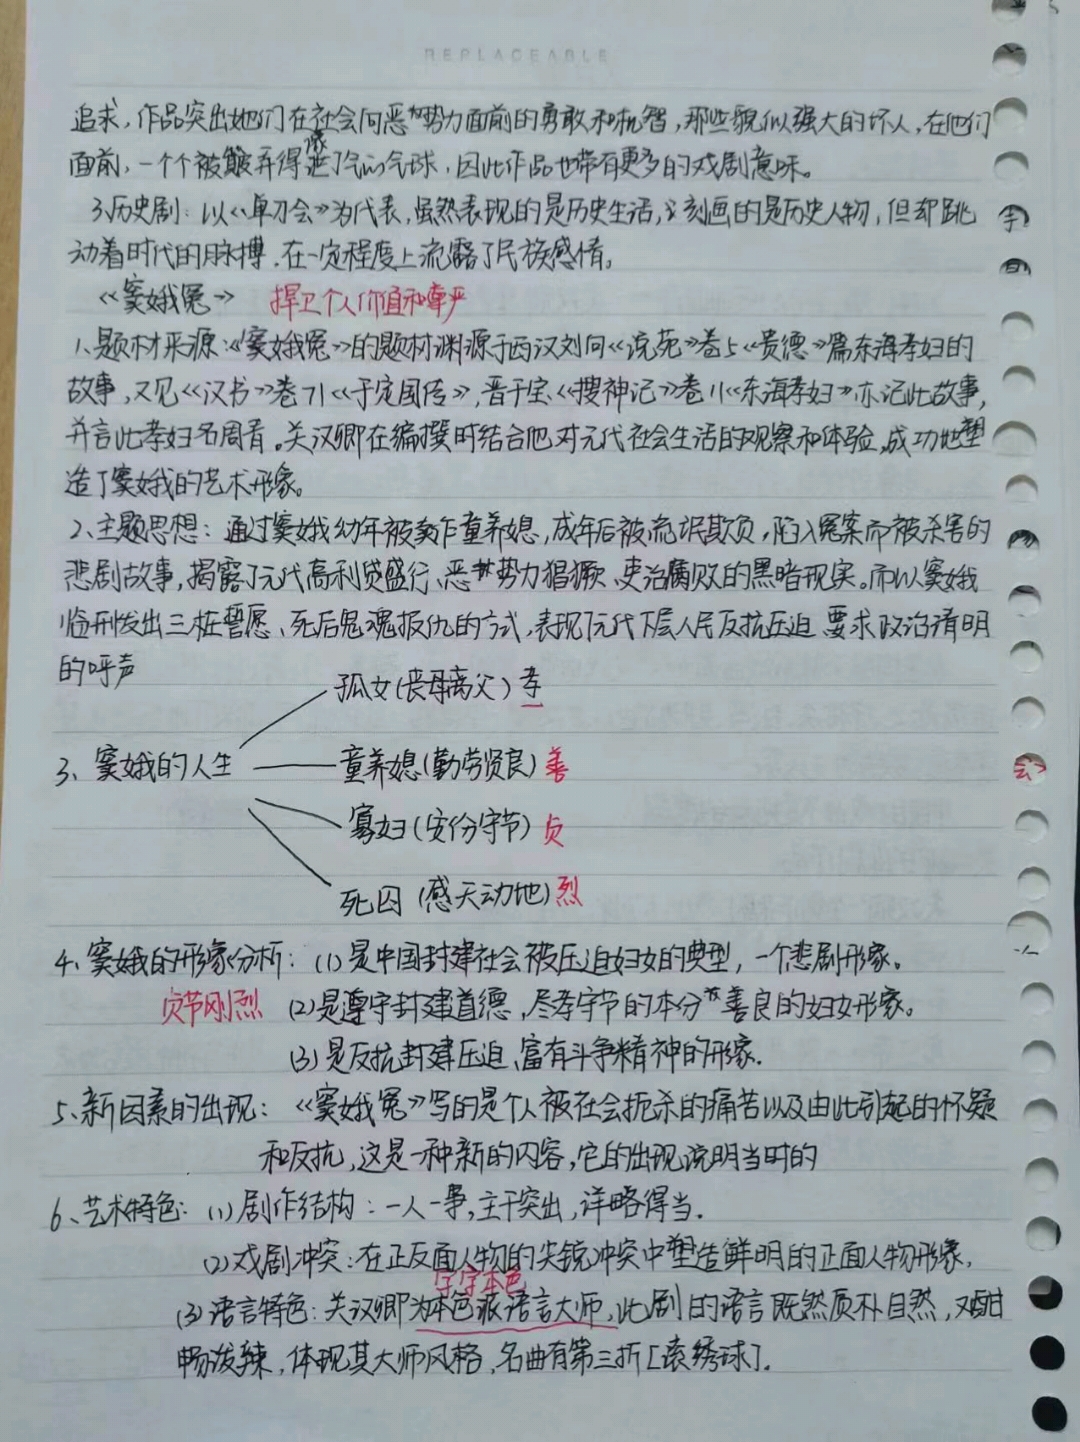 REPLACEABLE
追求，作品突出她们在社会向恶势力面前的勇敢和机智，那些貌似强大的坏人，在他们
面前，一个个被簸弄得像泄了气的气球，因此作品也带有更多的戏剧意味。
3.历史剧：以《单刀会》为代表，虽然表现的是历史生活，刻画的是历史人物，但却跳
动着时代的脉搏，在一定程度上流露了民族感情。
《窦娥冤》 捍卫个人价值和尊严
1、题材来源：《窦娥冤》的题材渊源于西汉刘向《说苑》卷5《贵德》篇东海孝妇的
故事，又见《汉书》卷71《于定国传》，晋干宝《搜神记》卷11《东海孝妇》亦记此故事，
并言此孝妇名周青。关汉卿在编撰时结合他对元代社会生活的观察和体验，成功地塑
造了窦娥的艺术形象。
2、主题思想：通过窦娥幼年被卖作童养媳，成年后被流氓欺负，陷入冤案而被杀害的
悲剧故事，揭露了元代高利贷盛行、恶势力猖獗、吏治腐败的黑暗现实。而以窦娥
临刑发出三桩誓愿、死后鬼魂报仇的方式，表现了元代下层人民反抗压迫 要求政治清明
的呼声
孤女(丧母离父) 孝
3、窦娥的人生 童养媳(勤劳贤良) 善
寡妇(安份守节) 贞
死囚(感天动地) 烈
4、窦娥的形象分析：(1)是中国封建社会被压迫妇女的典型，一个悲剧形象。
贞节刚烈 (2)是遵守封建道德，尽孝守节的本分善良的妇女形象。
(3)是反抗封建压迫、富有斗争精神的形象.
5、新因素的出现：《窦娥冤》写的是个人被社会扼杀的痛苦以及由此引起的怀疑
和反抗，这是一种新的内容，它的出现说明当时的
6、艺术特色：(1)剧作结构：一人一事，主干突出，详略得当.
(2)戏剧冲突：在正反面人物的尖锐冲突中塑造鲜明的正面人物形象，
字字本色
(3)语言特色：关汉卿为本色派语言大师，此剧的语言既然质朴自然，又酣
畅泼辣，体现其大师风格，名曲有第三折[滚绣球].